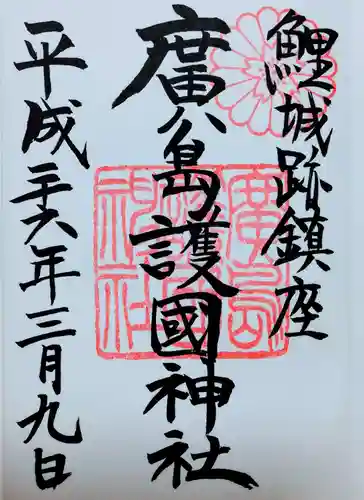 鯉城跡鎮座
廣島護國神社
平成二十六年三月九日
廣島護國神社